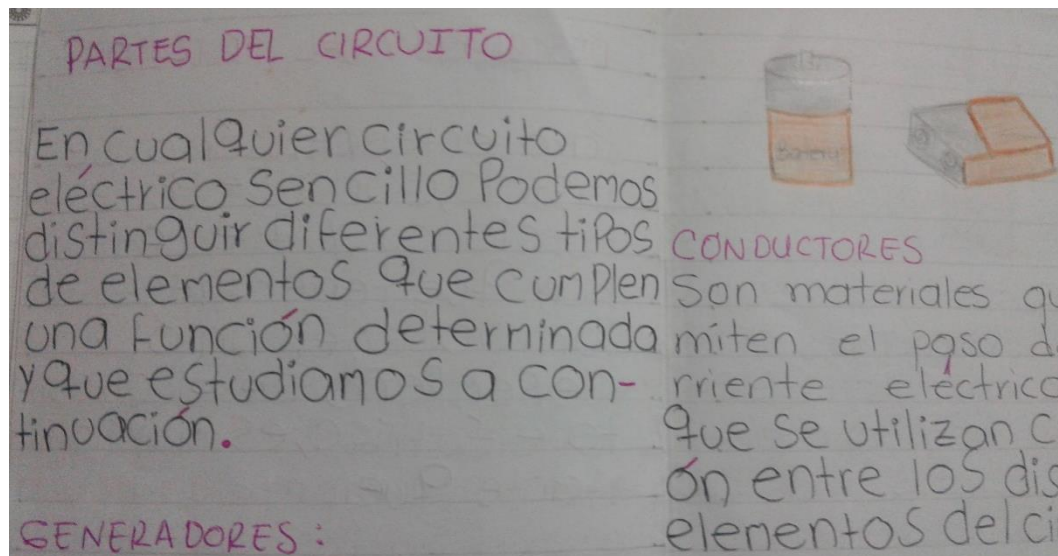 PARTES DEL CIRCUITO
En cualquier circuito
eléctrico sencillo Podemos
distinguir diferentes tipos
de elementos que cumplen
una función determinada
y que estudiamos a con-
tinuación.
GENERADORES:
CONDUCTORES
Son materiales
miten el paso
rriente
que se utilizan
ón entre los
elementos del